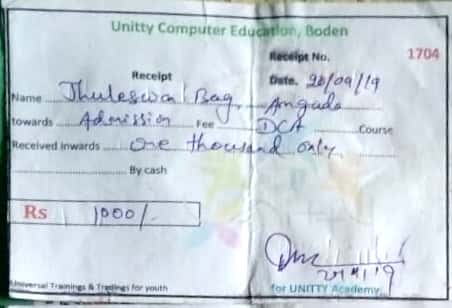 Unitty Computer Education, Boden
Receipt No. 1704
Receipt
Date. 20/09/19
Name Jhuleswar Bag, Anguda
towards Admission Fee DCA Course
Received Inwards One thousand only
By cash
Rs 1000/-
Universal Trainings & Tradings for youth
for UNITTY Academy